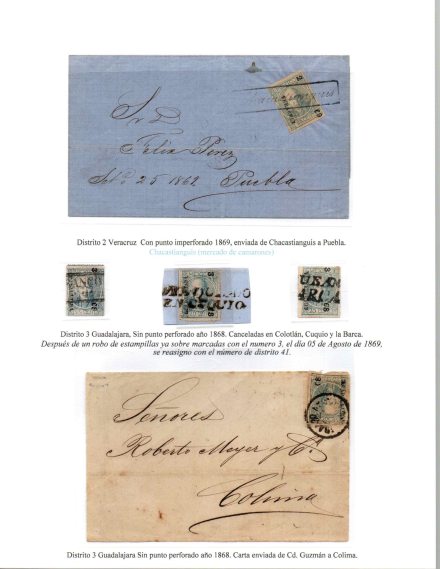 Sr D
Felix Perez
Set.e 25 1869 Puebla
Distrito 2 Veracruz Con punto imperforado 1869, enviada de Chacastianguis a Puebla.
Chacastianguis (mercado de camarones)
EN CUQUIO
Distrito 3 Guadalajara, Sin punto perforado año 1868. Canceladas en Colotlán, Cuquio y la Barca.
Después de un robo de estampillas ya sobre marcadas con el numero 3, el día 05 de Agosto de 1869,
se reasigno con el número de distrito 41.
Señores
Roberto Meyer y Ca.
Colima
Distrito 3 Guadalajara Sin punto perforado año 1868. Carta enviada de Cd. Guzmán a Colima.